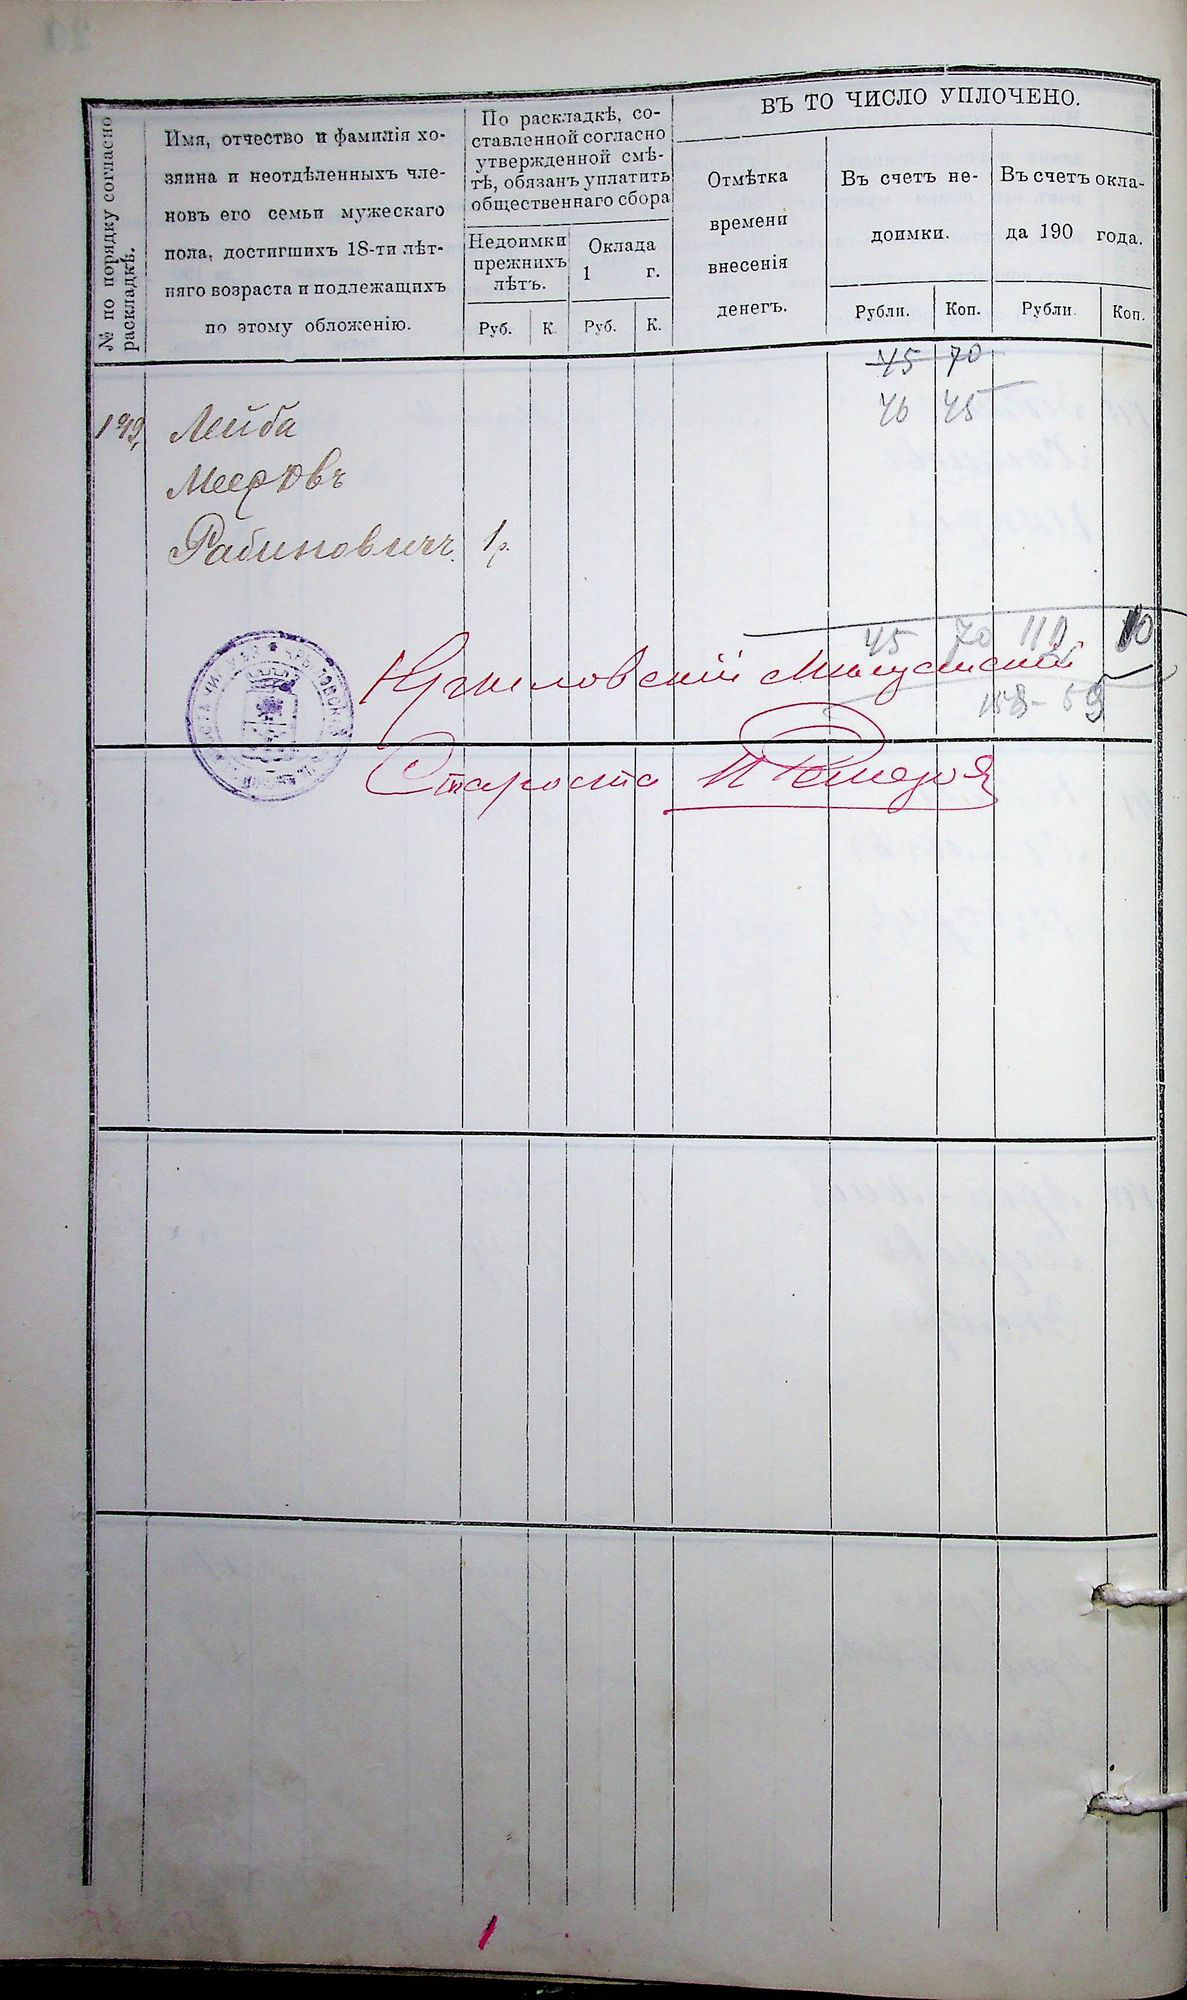 ВЪ ТО ЧИСЛО УПЛОЧЕНО.
№ по порядку согласно
раскладкѣ.
Имя, отчество и фамилія хо-
зяина и неотдѣленныхъ чле-
новъ его семьи мужескаго
пола, достигшихъ 18-ти лѣт-
няго возраста и подлежащихъ
по этому обложенію.
По раскладкѣ, со-
ставленной согласно
утвержденной смѣ-
тѣ, обязанъ уплатить
общественнаго сбора
Недоимки
прежнихъ
лѣтъ.
Оклада
1 г.
Руб. К. Руб. К.
Отмѣтка
времени
внесенія
денегъ.
Въ счетъ не-
доимки.
Рубли. Коп.
Въ счетъ окла-
да 190 года.
Рубли. Коп.
45 70
Лейба
Рабиновичъ. 1р.
45 70 112 10
Староста
1